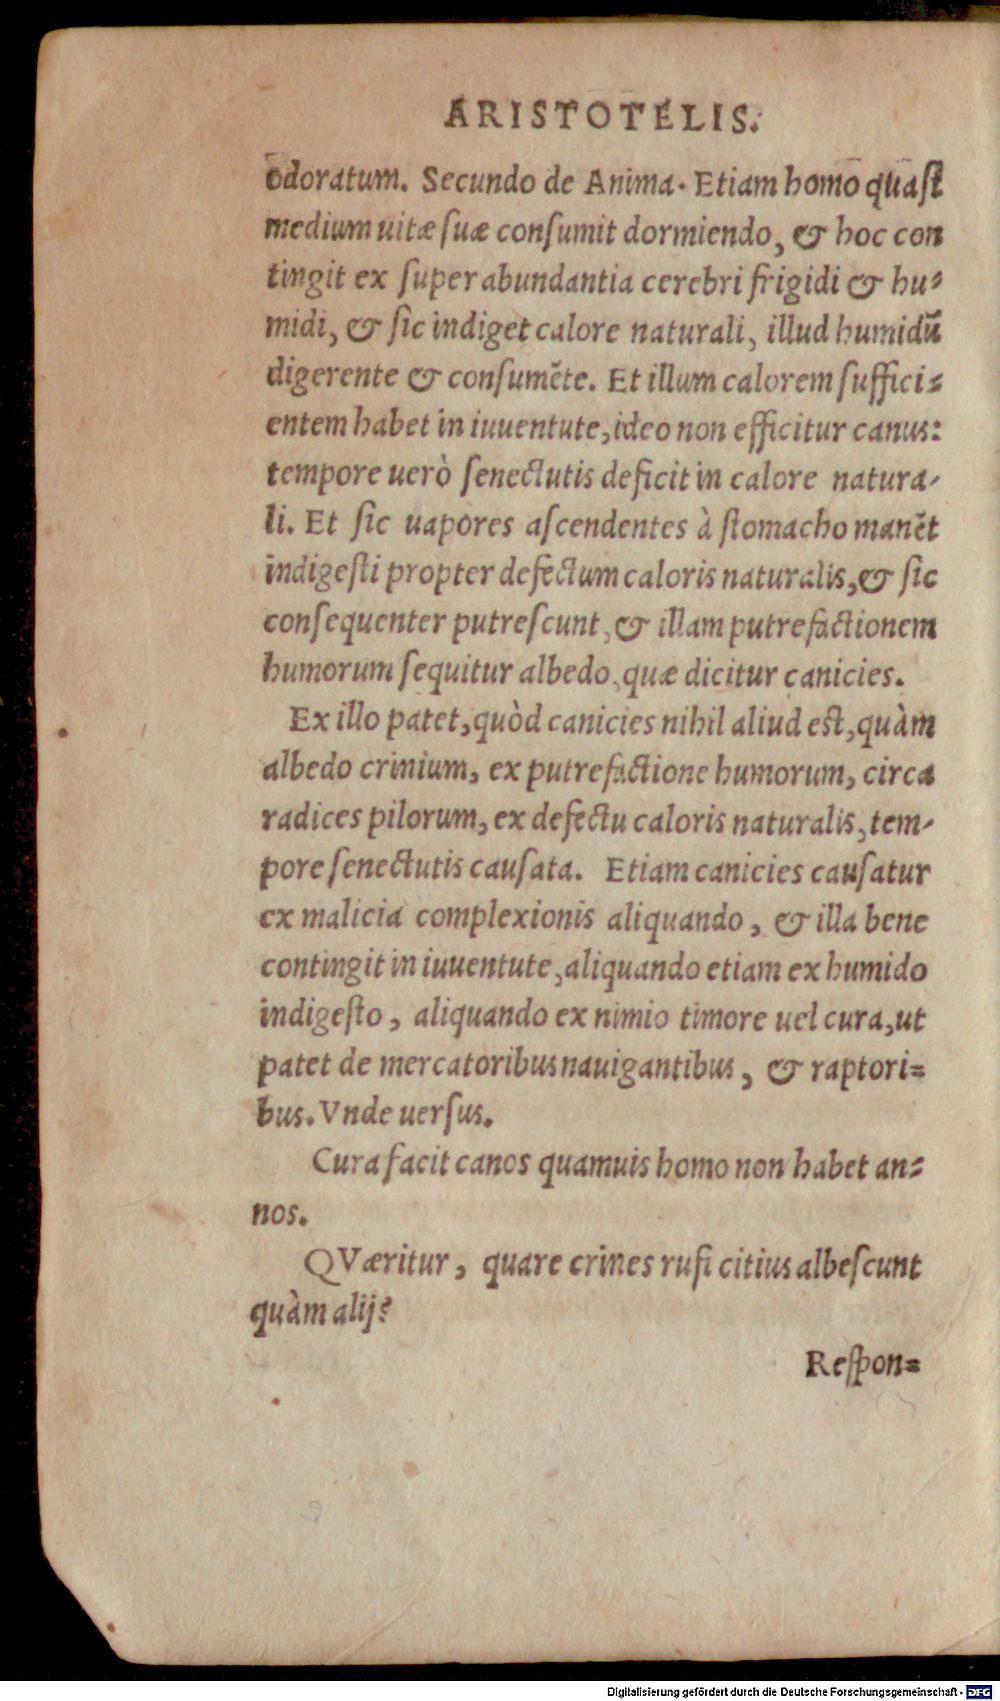 ARISTOTELIS.
odoratum. Secundo de Anima. Etiam homo quasi
medium uitæ suæ consumit dormiendo, & hoc con
tingit ex superabundantia cerebri frigidi & hu-
midi, & sic indiget calore naturali, illud humidū
digerente & consumēte. Et illum calorem suffici=
entem habet in iuuentute, ideo non efficitur canus:
tempore uerò senectutis deficit in calore natura-
li. Et sic uapores ascendentes à stomacho manēt
indigesti propter defectum caloris naturalis, & sic
consequenter putrescunt, & illam putrefactionem
humorum sequitur albedo, quæ dicitur canicies.
Ex illo patet, quòd canicies nihil aliud est, quàm
albedo crinium, ex putrefactione humorum, circa
radices pilorum, ex defectu caloris naturalis, tem-
pore senectutis causata. Etiam canicies causatur
ex malicia complexionis aliquando, & illa bene
contingit in iuuentute, aliquando etiam ex humido
indigesto, aliquando ex nimio timore uel cura, ut
patet de mercatoribus nauigantibus, & raptori=
bus. Vnde uersus.
Cura facit canos quamuis homo non habet an=
nos.
QVæritur, quare crines rufi citius albescunt
quàm alij?
Respon=
Digitalisierung gefördert durch die Deutsche Forschungsgemeinschaft - DFG